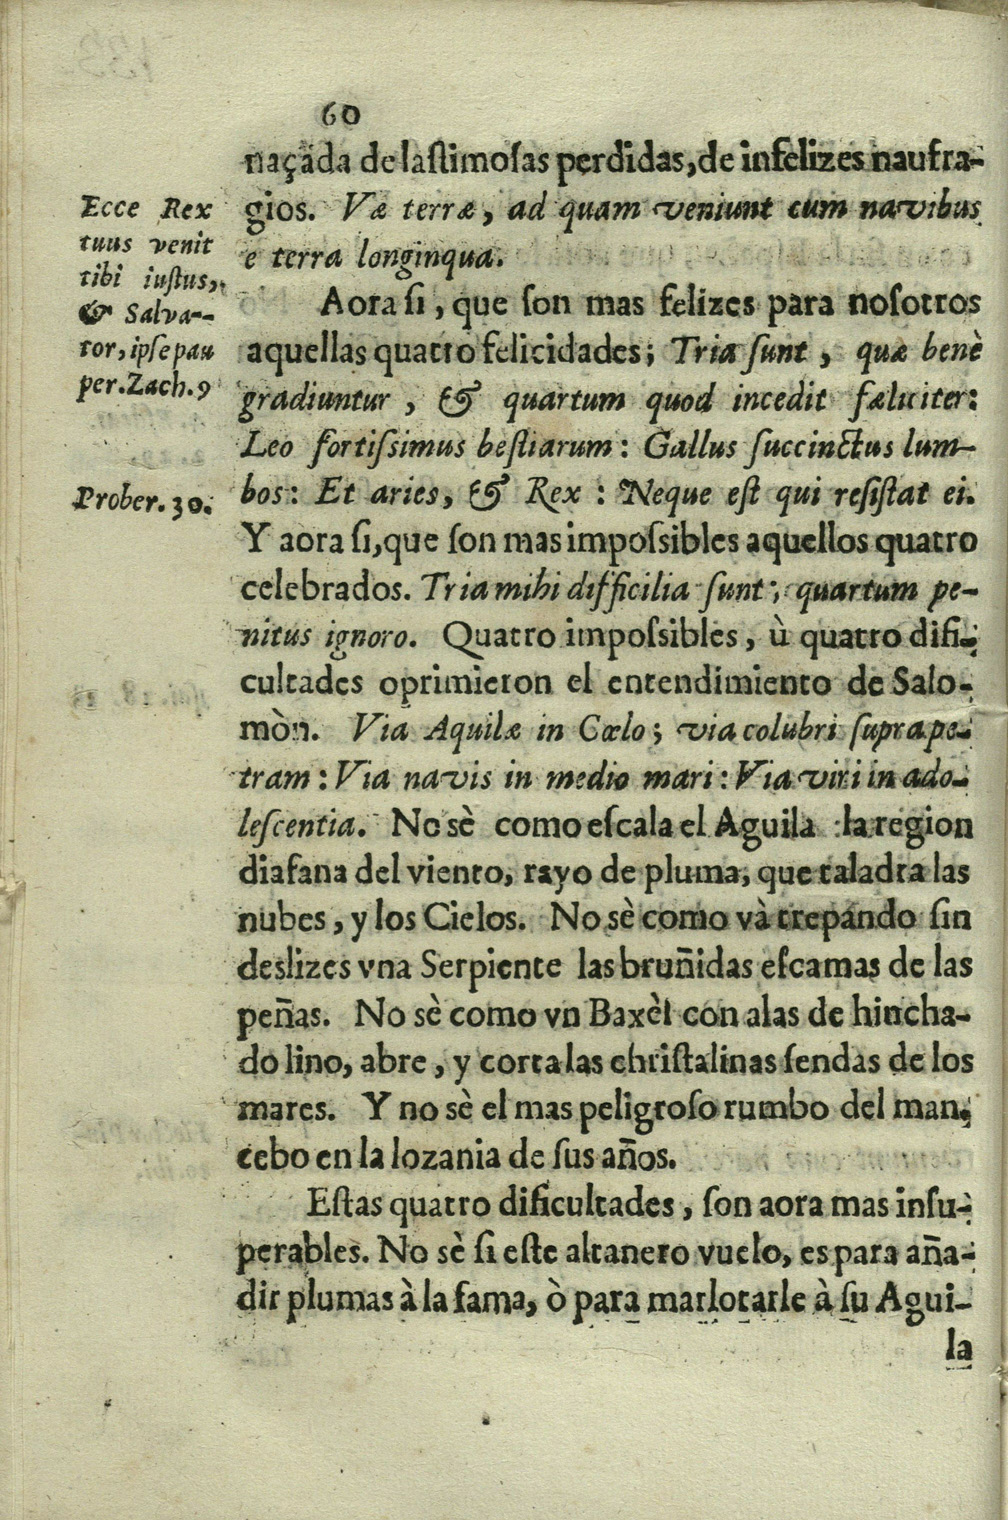 60
naçada de lastimosas perdidas, de infelizes naufra-
gios. Væ terræ, ad quam veniunt cum navibus
e terra longinqua.
Aora si, que son mas felizes para nosotros
aquellas quatro felicidades; Tria sunt, quæ benè
gradiuntur, & quartum quod incedit fæliciter:
Leo fortissimus bestiarum: Gallus succinctus lum-
bos: Et aries, & Rex: Neque est qui resistat ei.
Y aora si, que son mas impossibles aquellos quatro
celebrados. Tria mihi difficilia sunt; quartum pe-
nitus ignoro. Quatro impossibles, ù quatro difi-
cultades oprimieron el entendimiento de Salo-
mòn. Via Aquilæ in Cœlo; via colubri supra pe-
tram: Via navis in medio mari: Via viri in ado-
lescentia. No sè como escala el Aguila la region
diafana del viento, rayo de pluma, que taladra las
nubes, y los Cielos. No sè como và trepando sin
deslizes vna Serpiente las bruñidas escamas de las
peñas. No sè como vn Baxèl con alas de hincha-
do lino, abre, y corta las christalinas sendas de los
mares. Y no sè el mas peligroso rumbo del man-
cebo en la lozania de sus años.
Estas quatro dificultades, son aora mas insu-
perables. No sè si este altanero vuelo, es para aña-
dir plumas à la fama, ò para marlotarle à su Agui-
la
Ecce Rex
tuus venit
tibi iustus,
& Salva-
tor, ipse pau
per. Zach. 9
Prober. 30.